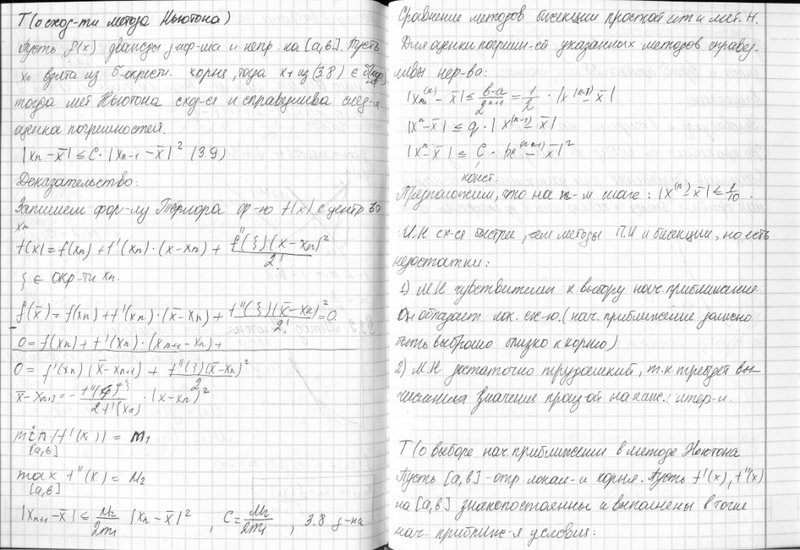 Т(о сход-ти метода Ньютона)
Пусть f(x) дважды диф-ма и непр. на [a,b]. Пусть
x₀ взята из б-окрестн. корня, тогда x₁ из (3.8) ∈
тогда мет Ньютона сход-ся и справедлива след-я
оценка погрешностей.
|xₙ - x̄| ≤ C · |xₙ₋₁ - x̄|² (3.9)
Доказательство:
Запишем фор-лу Тейлора ф-ю f(x) с центр в т
xₙ
f(x) = f(xₙ) + f'(xₙ) · (x - xₙ) + f''(ξ)(x - xₙ)² / 2!
ξ ∈ окр-ти xₙ.
f(x̄) = f(xₙ) + f'(xₙ) · (x̄ - xₙ) + f''(ξ)(x̄ - xₙ)² / 2! = 0
0 = f(xₙ) + f'(xₙ) · (xₙ₊₁ - xₙ) +
0 = f'(xₙ)(x̄ - xₙ₊₁) + f''(ξ)(x̄ - xₙ)² / 2
x̄ - xₙ₊₁ = - f''(ξ) / 2f'(xₙ) · (x - xₙ)²
min |f'(x)| = m₁
[a,b]
max f''(x) = M₂
[a,b]
|xₙ₊₁ - x̄| ≤ M₂ / 2m₁ |xₙ - x̄|² , C = M₂ / 2m₁ , 3.8 д-на
Сравнение методов бисекции простой ит и мет. Н.
Для оценки погрешн-ей указанных методов справед-
ливы нер-ва:
|x⁽ⁿ⁾ - x̄| ≤ b-a / 2ⁿ⁺¹ = 1/2 · |x⁽ⁿ⁻¹⁾ - x̄|
|xⁿ - x̄| ≤ q · |x⁽ⁿ⁻¹⁾ - x̄|
|xⁿ - x̄| ≤ C · |x⁽ⁿ⁻¹⁾ - x̄|²
конст.
Предположим, что на n-м шаге: |x⁽ⁿ⁾ - x̄| ≤ 1/10.
М.Н сх-ся быстрее, чем методы П.И и бисекции, но есть
недостатки:
1) М.Н чувствителен к выбору нач. приближения
Он обладает лок. сх-ю. (нач. приближение должно
быть выбрано близко к корню)
2) М.Н достаточно трудоёмкий, т.к требует вы-
числения значения произ-ой на каж. итер-и.
Т(о выборе нач. приближении в методе Ньютона
Пусть [a,b] - отр. локал-и корня. Пусть f'(x), f''(x)
на [a,b] знакопостоянны и выполнены в точке
нач. приближ-я условия: